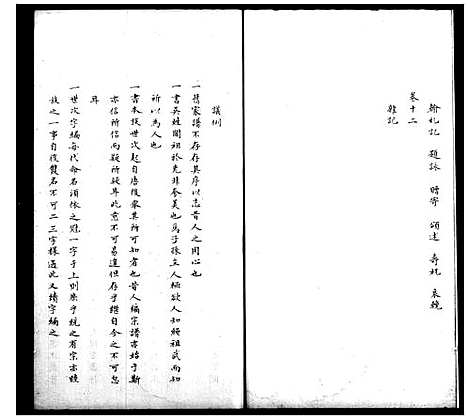 翰札記 題詠 贈寄 頌述 壽札 哀輓
卷十二
雜記
議例
一舊家譜不存存其序以志昔人之同心也
一書吳姓開祖於先非夸美也為子孫立人極欲人知繩祖武而知
所以為人也
一書本族世次起自唐後眾其所可知者也昔人編宗譜亦始于斯
亦信所信而疑所疑耳此意不可易違但存乎繼自今之不可忽
耳
一世次字編每代命名須依之冠一字于上則原乎統之有宗亦睦
族之一事自後雙名不可二三字樣過此又續字編之